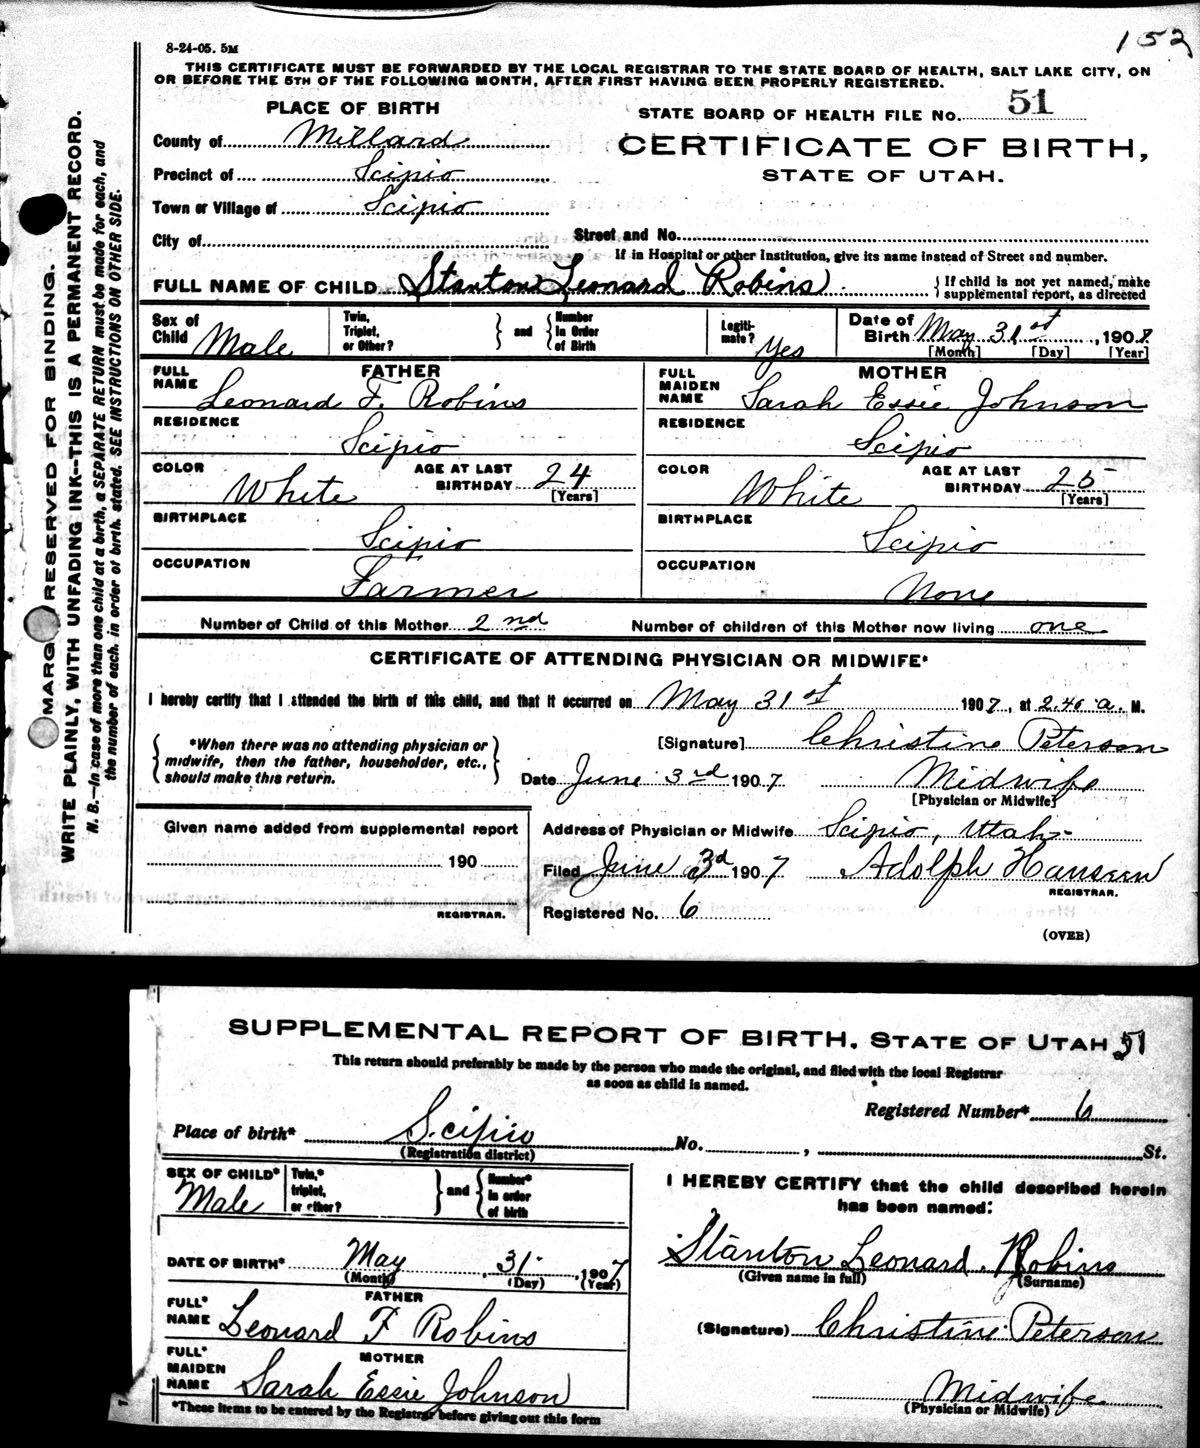 152
8-24-05. 5M
THIS CERTIFICATE MUST BE FORWARDED BY THE LOCAL REGISTRAR TO THE STATE BOARD OF HEALTH, SALT LAKE CITY, ON
OR BEFORE THE 5TH OF THE FOLLOWING MONTH, AFTER FIRST HAVING BEEN PROPERLY REGISTERED.
PLACE OF BIRTH
STATE BOARD OF HEALTH FILE NO. 51
County of Millard
CERTIFICATE OF BIRTH,
STATE OF UTAH.
Precinct of Scipio
Town or Village of Scipio
City of
Street and No.
If in Hospital or other Institution, give its name instead of Street and number.
FULL NAME OF CHILD Stanton Leonard Robins { If child is not yet named, make supplemental report, as directed
Sex of Child Male Twin, Triplet, or Other? } and { Number in Order of Birth Legiti-mate? Yes Date of Birth May 31st, 1907
[Month] [Day] [Year]
FATHER
FULL NAME Leonard F. Robins
RESIDENCE Scipio
COLOR White AGE AT LAST BIRTHDAY 24 [Years]
BIRTHPLACE Scipio
OCCUPATION Farmer
MOTHER
FULL MAIDEN NAME Sarah Essie Johnson
RESIDENCE Scipio
COLOR White AGE AT LAST BIRTHDAY 25 [Years]
BIRTHPLACE Scipio
OCCUPATION None
Number of Child of this Mother 2nd Number of children of this Mother now living one
CERTIFICATE OF ATTENDING PHYSICIAN OR MIDWIFE*
I hereby certify that I attended the birth of this child, and that it occurred on May 31st 1907, at 2.40 a. M.
{ *When there was no attending physician or
midwife, then the father, householder, etc.,
should make this return. }
[Signature] Christine Peterson
Date June 3rd 1907 Midwife
[Physician or Midwife]
Given name added from supplemental report
190
REGISTRAR.
Address of Physician or Midwife Scipio, Utah
Filed June 3rd 1907 Adolph Hansen
REGISTRAR.
Registered No. 6
(OVER)
MARGIN RESERVED FOR BINDING.
WRITE PLAINLY, WITH UNFADING INK--THIS IS A PERMANENT RECORD.
N. B.--In case of more than one child at a birth, a SEPARATE RETURN must be made for each, and
the number of each, in order of birth, stated. SEE INSTRUCTIONS ON OTHER SIDE.
SUPPLEMENTAL REPORT OF BIRTH, STATE OF UTAH 51
This return should preferably be made by the person who made the original, and filed with the local Registrar
as soon as child is named.
Registered Number* 6
Place of birth* Scipio No. , St.
(Registration district)
SEX OF CHILD* Male Twin,* triplet, or other? } and { Number* in order of birth
DATE OF BIRTH* May 31, 1907
(Month) (Day) (Year)
FATHER
FULL* NAME Leonard F Robins
MOTHER
FULL* MAIDEN NAME Sarah Essie Johnson
*These items to be entered by the Registrar before giving out this form
I HEREBY CERTIFY that the child described herein
has been named:
Stanton Leonard Robins
(Given name in full) (Surname)
(Signature) Christine Peterson
Midwife
(Physician or Midwife)